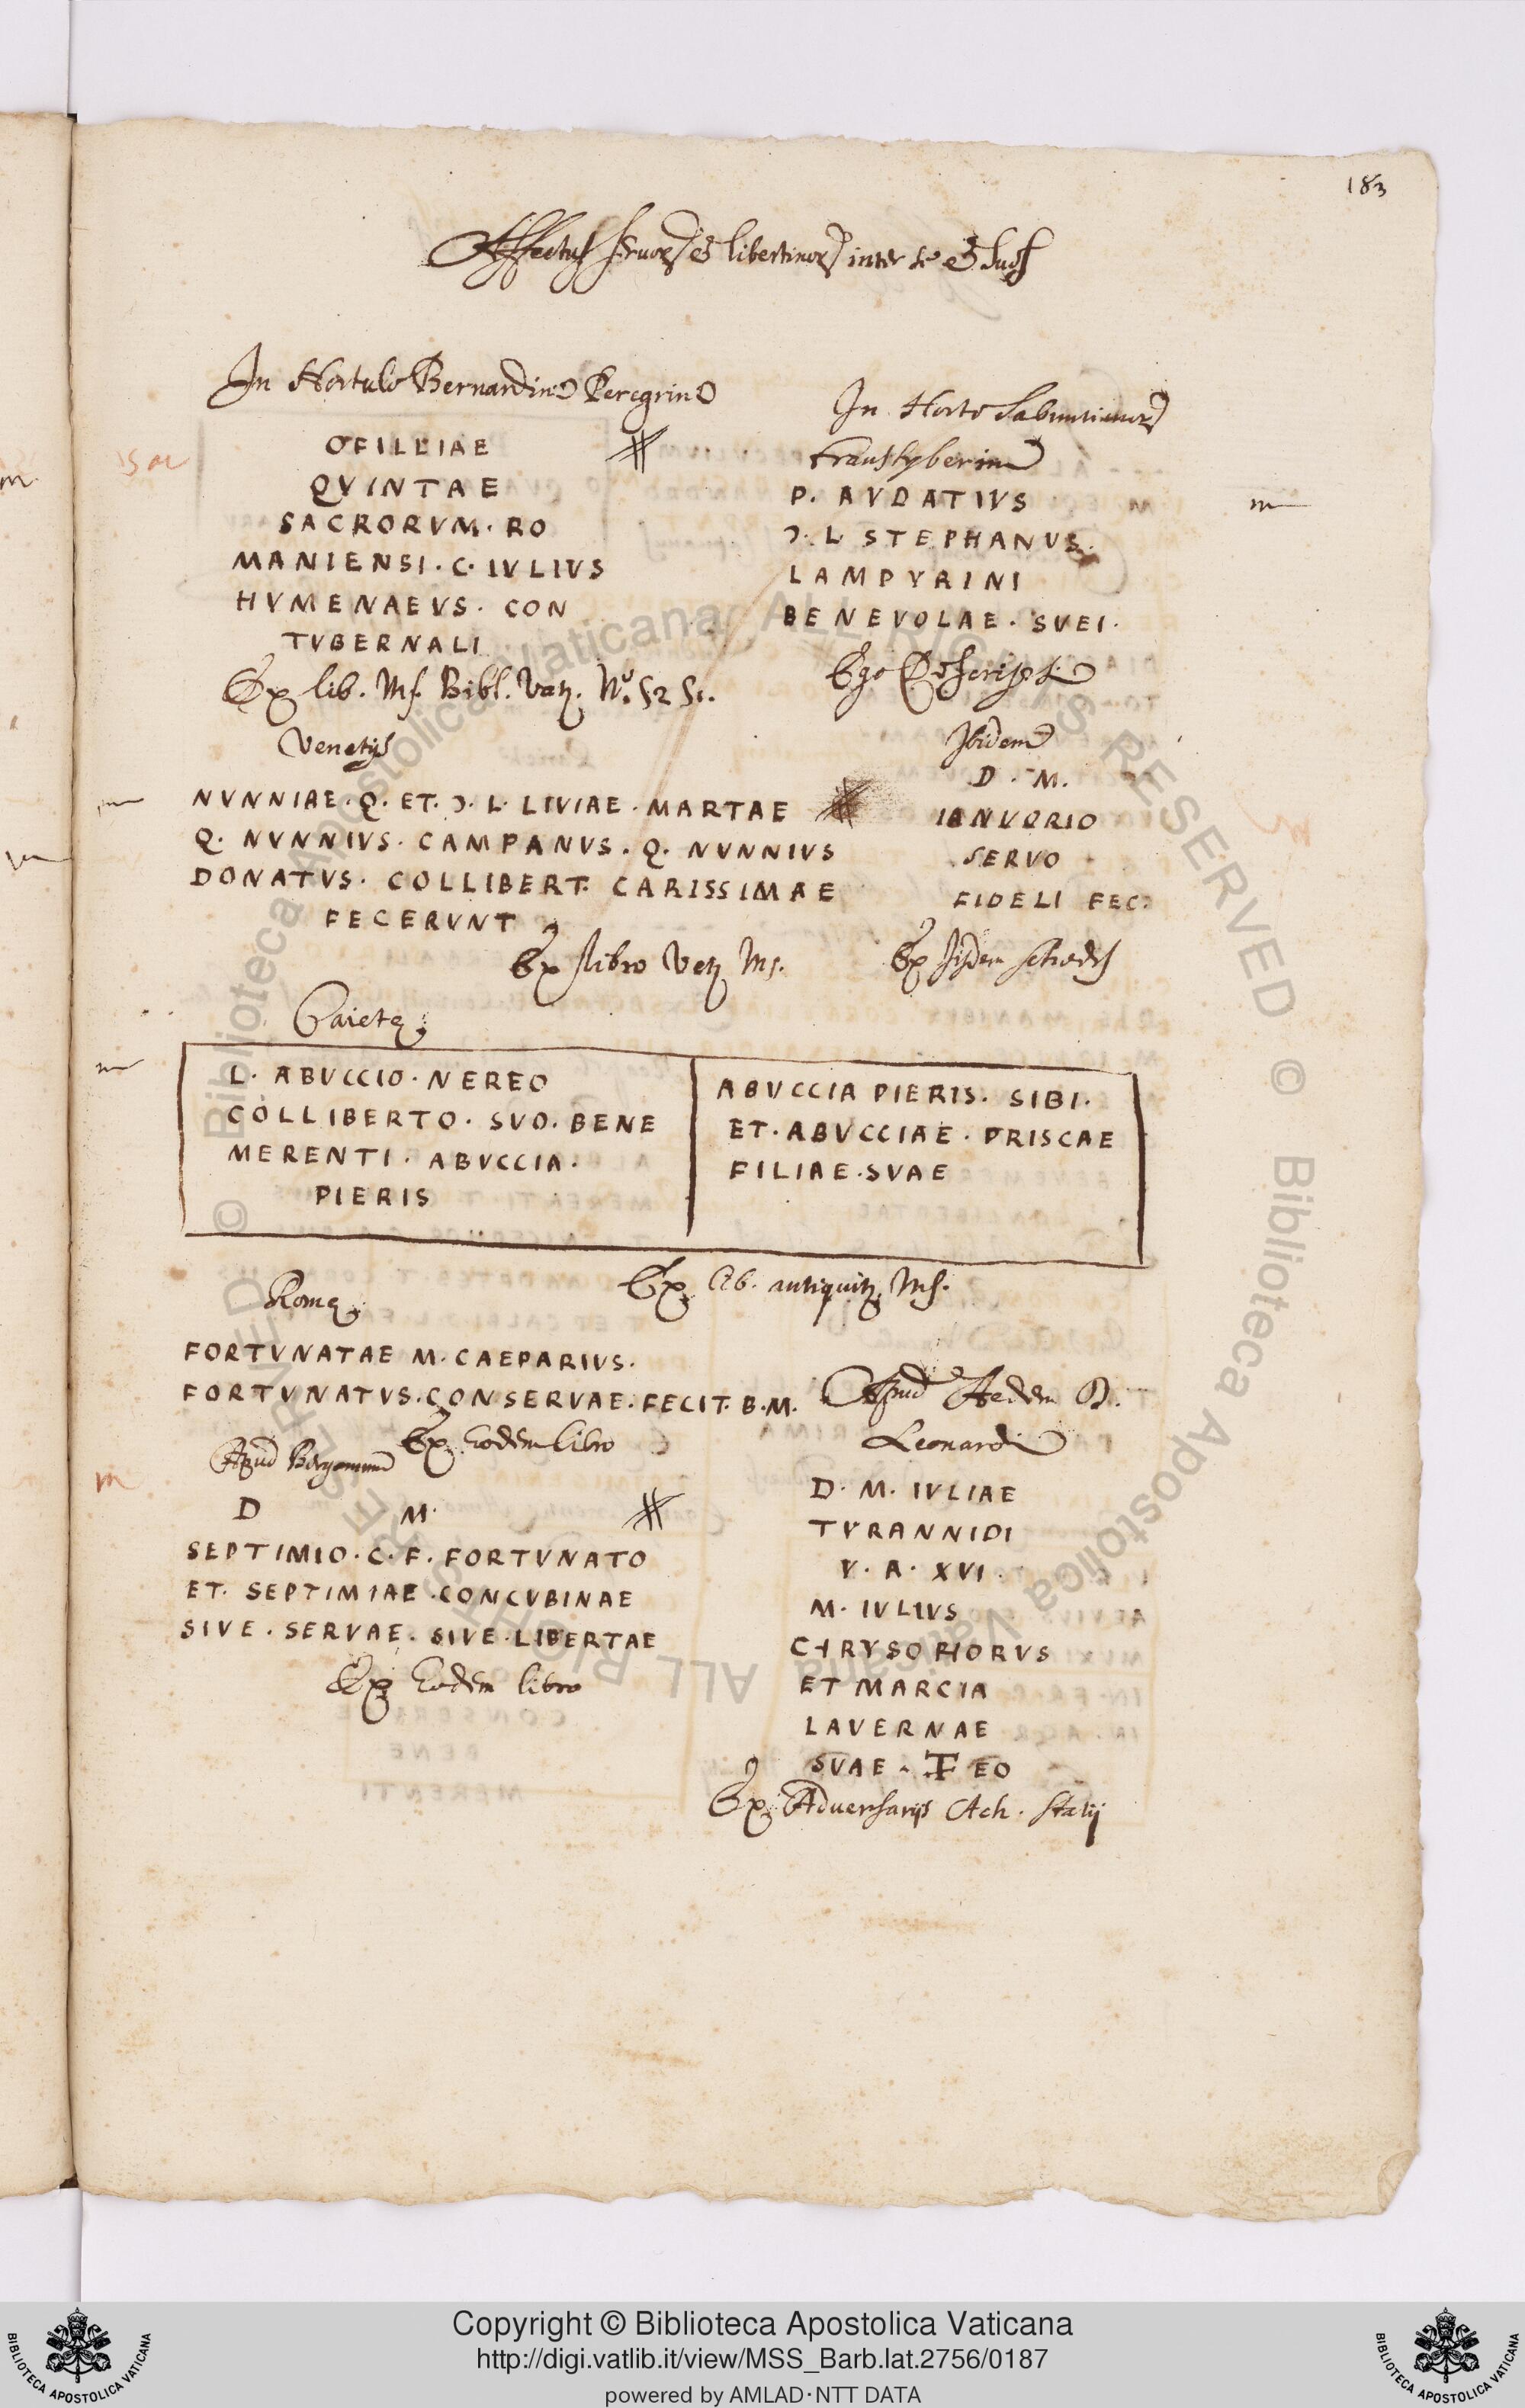 183
Affectus seruoꝝ et libertinoꝝ inter se et suos
In Hortulo Bernardini Peregrini
OFILLIAE
QVINTAE
SACRORVM · RO
MANIENSI · C · IVLIVS
HVMENAEVS · CON
TVBERNALI
Ex lib. Ms. Bibl. Vat. N.º 5251.
Venetijs
NVNNIAE · Q · ET · Ɔ · L · LIVIAE · MARTAE
Q. NVNNIVS · CAMPANVS · Q. NVNNIVS
DONATVS · COLLIBERT· CARISSIMAE
FECERVNT
Ex libro Vet. Ms.
In Horto
transtyberim
P. AVDATIVS
Ɔ · L STEPHANVS
LAMPYRINI
BENEVOLAE · SVEI ·
Ego descripsi
Ibidem
D · M.
IANVARIO
SERVO
FIDELI FEC
Ex ijsdem schedis
Caietę
L · ABVCCIO · NEREO
COLLIBERTO · SVO · BENE
MERENTI · ABVCCIA ·
PIERIS
ABVCCIA PIERIS · SIBI ·
ET · ABVCCIAE · PRISCAE
FILIAE · SVAE
Ex lib. antiquit. Ms.
Romę
FORTVNATAE M · CAEPARIVS ·
FORTVNATVS · CONSERVAE · FECIT · B · M.
Ex Eodem libro
Apud Bergomum
D M·
SEPTIMIO · C · F · FORTVNATO
ET · SEPTIMIAE · CONCVBINAE
SIVE · SERVAE · SIVE · LIBERTAE
Ex Eodem libro
Apud Aedem D.
Leonardi
D · M · IVLIAE
TYRANNIDI
V · A · XVI ·
M · IVLIVS
CHRYSOPHORVS
ET MARCIA
LAVERNAE
SVAE · TF EO
Ex Aduersarijs Ach. Statij
© Biblioteca Apostolica Vaticana ALL RIGHTS RESERVED © Biblioteca Apostolica Vaticana ALL RIGHTS RESERVED
Copyright © Biblioteca Apostolica Vaticana
http://digi.vatlib.it/view/MSS_Barb.lat.2756/0187
powered by AMLAD·NTT DATA
BIBLIOTECA APOSTOLICA VATICANA
BIBLIOTECA APOSTOLICA VATICANA